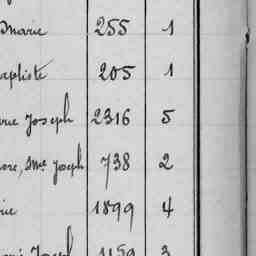 Marie 255 1
aptiste 205 1
rie Joseph 2316 5
Mie Joseph 738 2
rie 1899 4
Joseph 1159 3